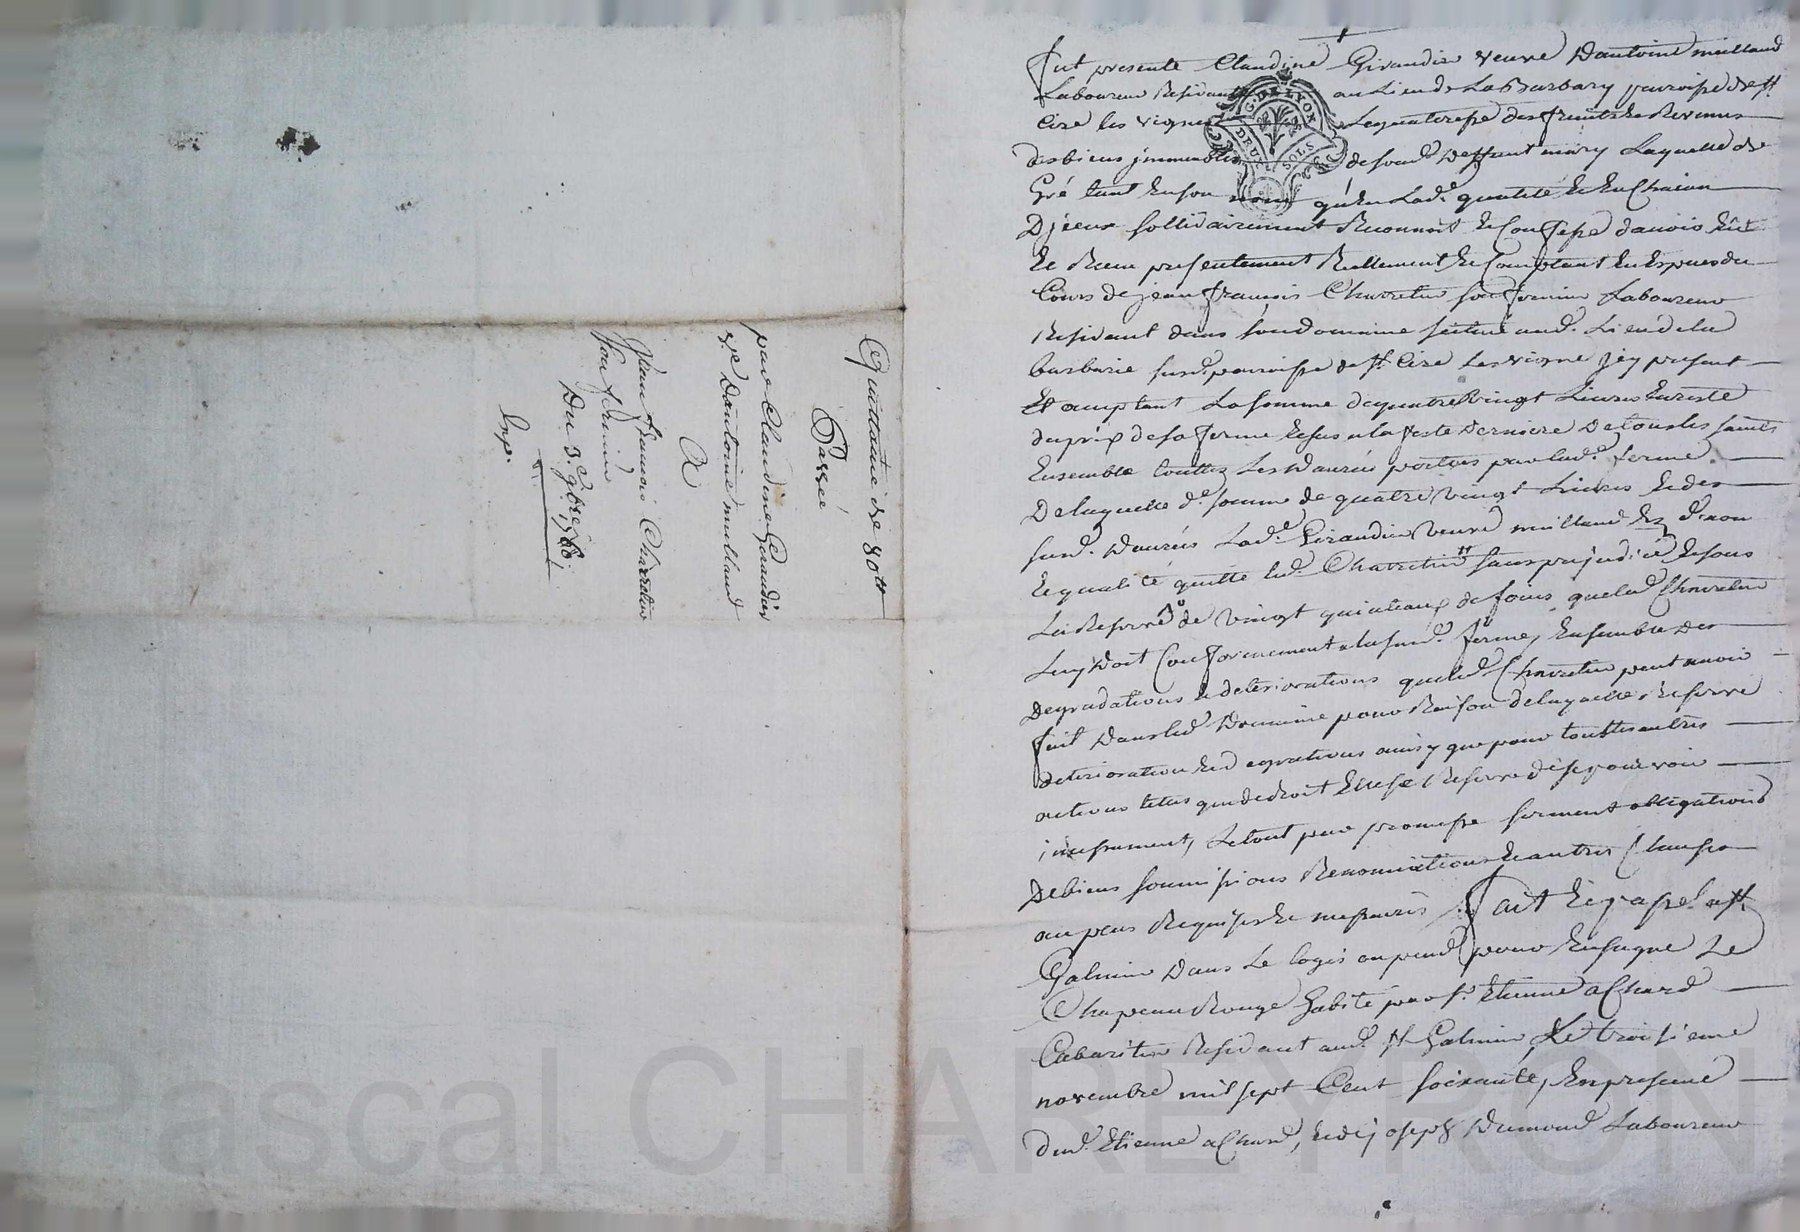 Quittance de 80tt
Passée
par Claudine Giraudier
ve. D'antoine milland
A
Jean françois Charretier
son fermier
Du 3e. 9bre 1760.
Exp.
Fut presente Claudine Giraudier veuve D'antoine milland
Laboureur Residante au Lieu de La Barbary parroisse de st.
Cire les vignes des fruits & Revenus
des biens jmmeubles de feu deffunt mary Laquelle de
Gré tant en son nom qu'en Lade. qualité & En Chacun
D'jceux sollidairement Reconnoit & Confesse d'avoir Eüt
& Receu presentement Réellement & Comptant En Espesses du
Cours de jean françois Charretier son fermier Laboureur
Residant dans son domaine scitué aud. Lieu de la
barbarie susd. parroisse de st. Cire Les vigne jcy present
Et acceptant La somme de quatre vingt Livres En reste
du prix de sa ferme Echus a la feste Derniere De tous les saints
Ensemble touttes Les Danrées portées par lade. ferme.
De laquelle de. somme de quatre vingt Livres & des
susd. Danrées Lade. Giraudier veuve milland Ez d. nom
& qualité quitte led. Charretier sans prejudice & sous
La Reserve de vingt quintaux de foins que led. Charretier
Luy Doit Conformement a la susd. ferme, Ensemble Des
Degradations & deteriorations que led. Charretier peut avoir
fait Dans led. Domaine pour Raison de laquelle Reserve
deterioration & degradations ainsy que pour touttes autres
actions telles que de droit Elle se Reserve de se pourvoir
incessament, Le tout par promesse serment obligations
De biens soumissions Renonciations & autres Clauses
au plus Requises & necessaires. Fait & passé a st.
Galmier Dans Le logis ou pend pour Enseigne Le
Chapeau Rouge habité par sr. Etienne achard
Cabaretier Residant aud. st. Galmier, Le troisieme
novembre mil sept Cent soixante, En presence
dud. Etienne achard, & de joseph Dumond Laboureur
G. DE LYON
DEUX SOLS
Pascal CHAREYRON